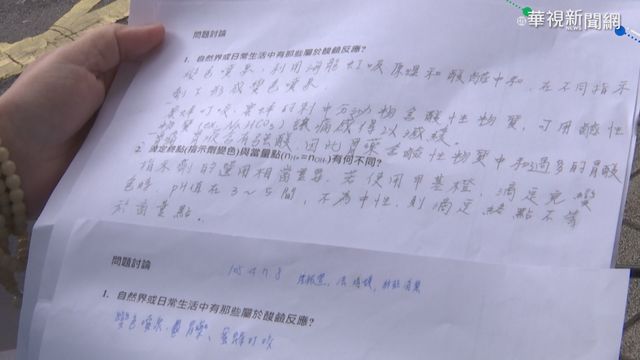 華視新聞網
問題討論
1. 自然界或日常生活中有那些屬於酸鹼反應?
變色噴泉,利用 虹吸原理和酸鹼中和,在不同指示
劑下形成變色噴泉。
叮咬, 的刺中 動物含酸性物質,可用鹼性
物質 讓痛感得以減緩。
有強酸,因此胃 含鹼性物質中和過多的胃酸
2. 滴定終點(指示劑變色)與當量點(nH+=nOH-)有何不同?
指示劑的選用相當重要,若使用甲基橙,滴定完變
色時,pH值在3~5間,不為中性,則滴定終點不等
於當量點。
問題討論
1. 自然界或日常生活中有那些屬於酸鹼反應?
變色噴泉、胃藥、 叮咬